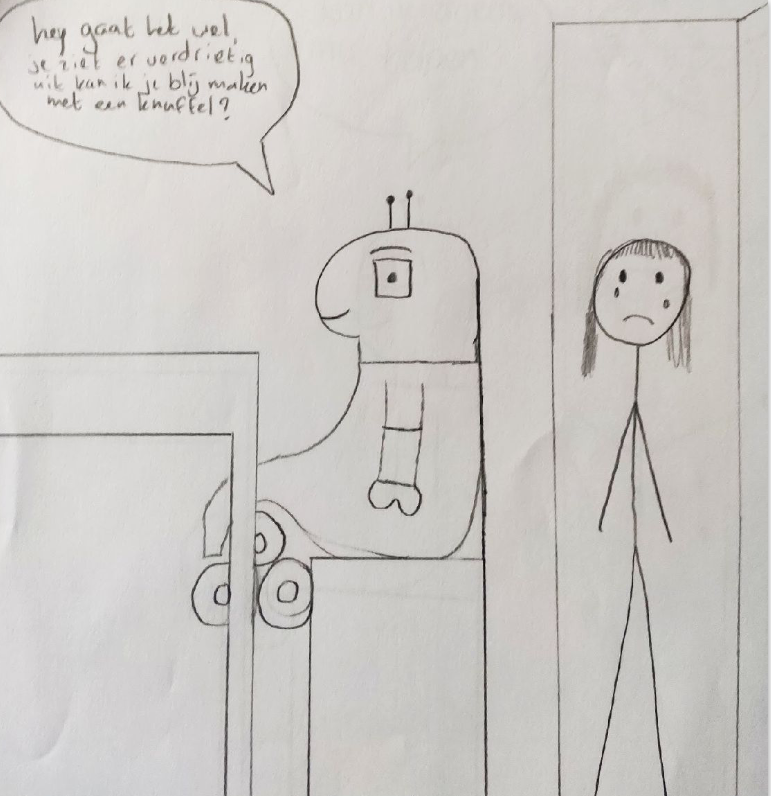 hey gaat het wel,
je ziet er verdrietig
uit kan ik je blij maken
met een knuffel?